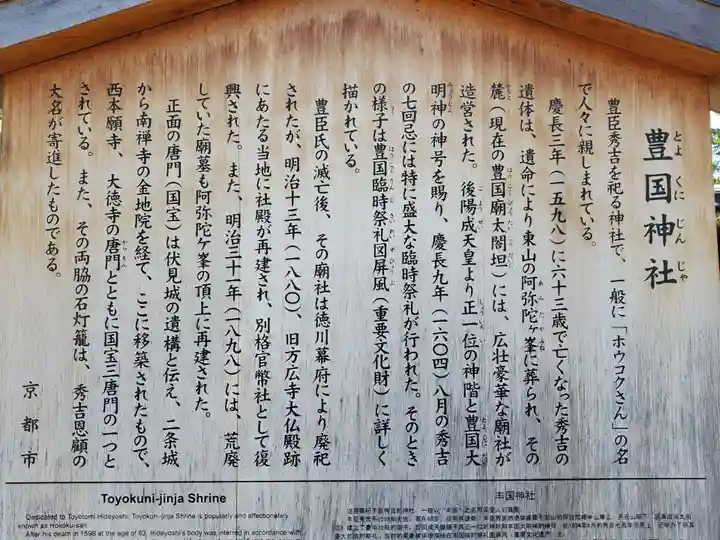 豊国神社
とよくにじんじゃ
豊臣秀吉を祀る神社で、一般に「ホウコクさん」の名
で人々に親しまれている。
慶長三年(一五九八)に六十三歳で亡くなった秀吉の
遺体は、遺命により東山の阿弥陀ヶ峯に葬られ、その
麓(現在の豊国廟太閤坦)には、広壮豪華な廟社が
造営された。後陽成天皇より正一位の神階と豊国大
明神の神号を賜り、慶長九年(一六〇四)八月の秀吉
の七回忌には特に盛大な臨時祭礼が行われた。そのとき
の様子は豊国臨時祭礼図屏風(重要文化財)に詳しく
描かれている。
豊臣氏の滅亡後、その廟社は徳川幕府により廃祀
されたが、明治十三年(一八八〇)、旧方広寺大仏殿跡
にあたる当地に社殿が再建され、別格官幣社として復
興された。また、明治三十一年(一八九八)には、荒廃
していた廟墓も阿弥陀ヶ峯の頂上に再建された。
正面の唐門(国宝)は伏見城の遺構と伝え、二条城
から南禅寺の金地院を経て、ここに移築されたもので、
西本願寺、大徳寺の唐門とともに国宝三唐門の一つと
されている。また、その両脇の石灯籠は、秀吉恩顧の
大名が寄進したものである。
京都市
Toyokuni-jinja Shrine
Dedicated to Toyotomi Hideyoshi, Toyokuni-jinja Shrine is popularly and affectionately
known as Hokoku-san
After his death in 1598 at the age of 63, Hideyoshi's body was interred in accordance with
丰国神社